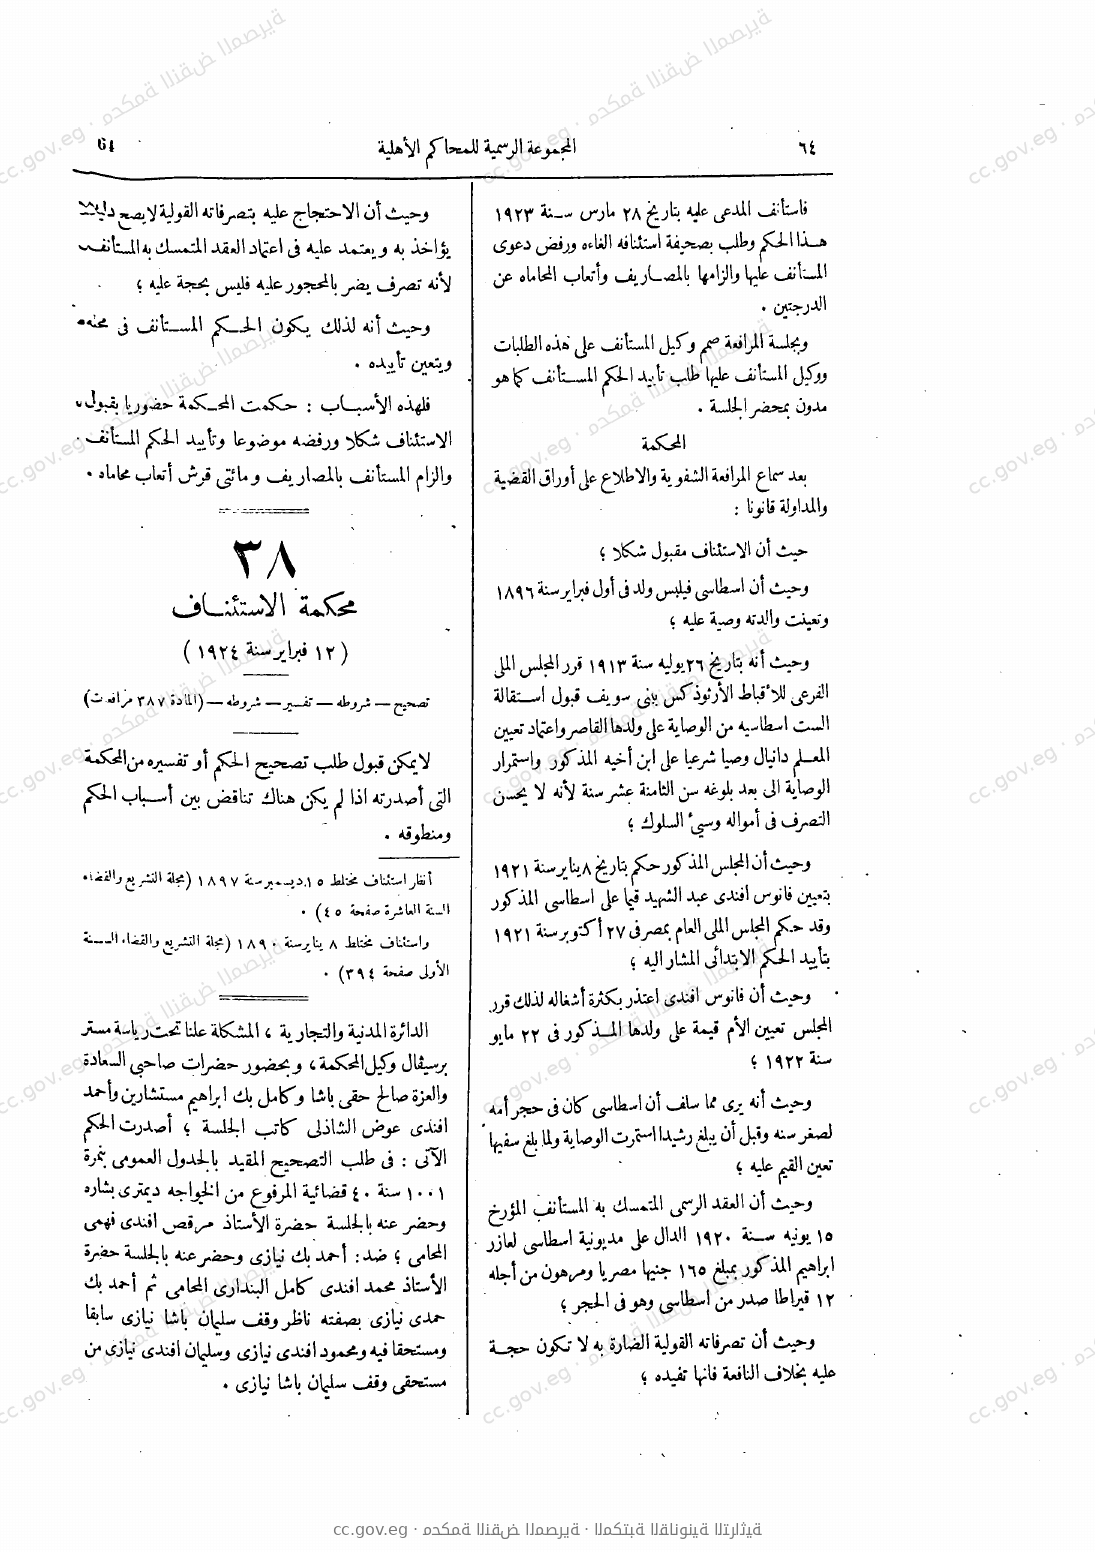 ٦٤
المجموعة الرسمية للمحاكم الأهلية
64
فاستأنف المدعى عليه بتاريخ ٢٨ مارس سنة ١٩٢٣
هذا الحكم وطلب بصحيفة استئنافه الغاءه ورفض دعوى
المستأنف عليها والزامها بالمصاريف وأتعاب المحاماه عن
الدرجتين .
وبجلسة المرافعة صمم وكيل المستأنف على هذه الطلبات
ووكيل المستأنف عليها طلب تأييد الحكم المستأنف كما هو
مدون بمحضر الجلسة .
المحكمة
بعد سماع المرافعة الشفوية والاطلاع على أوراق القضية
والمداولة قانونا :
حيث أن الاستئناف مقبول شكلا ؛
وحيث أن اسطاسى فيلبس ولد فى أول فبراير سنة ١٨٩٦
وتعينت والدته وصية عليه ؛
وحيث أنه بتاريخ ٢٦ يوليه سنة ١٩١٣ قرر المجلس الملى
الفرعى للأقباط الأرثوذكس ببنى سويف قبول استقالة
الست اسطاسيه من الوصاية على ولدها القاصر واعتماد تعيين
المعلم دانيال وصيا شرعيا على ابن أخيه المذكور واستمرار
الوصاية الى بعد بلوغه سن الثامنة عشر سنة لأنه لا يحسن
التصرف فى أمواله وسيئ السلوك ؛
وحيث أن المجلس المذكور حكم بتاريخ ٨ يناير سنة ١٩٢١
بتعيين فانوس افندى عبد الشهيد قيما على اسطاسى المذكور
وقد حكم المجلس الملى العام بمصر فى ٢٧ أكتوبر سنة ١٩٢١
بتأييد الحكم الابتدائى المشار اليه ؛
وحيث أن فانوس افندى اعتذر بكثرة أشغاله لذلك قرر
المجلس تعيين الأم قيمة على ولدها المذكور فى ٢٢ مايو
سنة ١٩٢٢ ؛
وحيث أنه يرى مما سلف أن اسطاسى كان فى حجر أمه
لصغر سنه وقبل أن يبلغ رشيدا استمرت الوصاية ولما بلغ سفيها
تعين القيم عليه ؛
وحيث أن العقد الرسمى المتمسك به المستأنف المؤرخ
١٥ يونيه سنة ١٩٢٠ الدال على مديونية اسطاسى لعازر
ابراهيم المذكور بمبلغ ١٦٥ جنيها مصريا ومرهون من أجله
١٢ قيراطا صدر من اسطاسى وهو فى الحجر ؛
وحيث أن تصرفاته القولية الضارة به لا تكون حجة
عليه بخلاف النافعة فانها تفيده ؛
وحيث أن الاحتجاج عليه بتصرفاته القولية لا يصح دليلا
يؤاخذ به ويعتمد عليه فى اعتماد العقد المتمسك به المستأنف
لأنه تصرف يضر بالمحجور عليه فليس بحجة عليه ؛
وحيث أنه لذلك يكون الحكم المستأنف فى محله
ويتعين تأييده .
فلهذه الأسباب : حكمت المحكمة حضوريا بقبول
الاستئناف شكلا ورفضه موضوعا وتأييد الحكم المستأنف
والزام المستأنف بالمصاريف ومائتى قرش أتعاب محاماه .
٣٨
محكمة الاستئناف
( ١٢ فبراير سنة ١٩٢٤ )
تصحيح — شروطه — تفسير — شروطه — (المادة ٣٨٧ مرافعات)
لا يمكن قبول طلب تصحيح الحكم أو تفسيره من المحكمة
التى أصدرته اذا لم يكن هناك تناقض بين أسباب الحكم
ومنطوقه .
أنظر استئناف مختلط ١٥ ديسمبر سنة ١٨٩٧ (مجلة التشريع والقضاء
السنة العاشرة صفحة ٤٥) .
واستئناف مختلط ٨ يناير سنة ١٨٩٠ (مجلة التشريع والقضاء السنة
الأولى صفحة ٣٩٤) .
الدائرة المدنية والتجارية ، المشكلة علنا تحت رياسة مستر
برسيڤال وكيل المحكمة ، وبحضور حضرات صاحبى السعادة
والعزة صالح حقى باشا وكامل بك ابراهيم مستشارين وأحمد
افندى عوض الشاذلى كاتب الجلسة ؛ أصدرت الحكم
الآتى : فى طلب التصحيح المقيد بالجدول العمومى بنمرة
١٠٠١ سنة ٤٠ قضائية المرفوع من الخواجه ديمترى بشاره
وحضر عنه بالجلسة حضرة الأستاذ مرقص افندى فهمى
المحامى ؛ ضد : أحمد بك نيازى وحضر عنه بالجلسة حضرة
الأستاذ محمد افندى كامل البندارى المحامى ثم أحمد بك
حمدى نيازى بصفته ناظر وقف سليمان باشا نيازى سابقا
ومستحقا فيه ومحمود افندى نيازى وسليمان افندى نيازى من
مستحقى وقف سليمان باشا نيازى .
cc.gov.eg · محكمة النقض المصرية · المكتبة القانونية التراثية